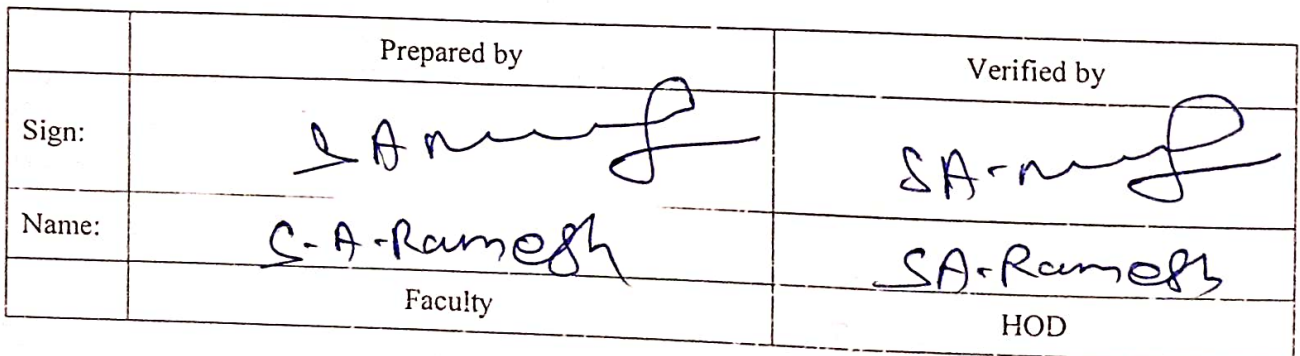 Prepared by Verified by
Sign:
Name: S-A-Ramesh SA-Ramesh
Faculty HOD